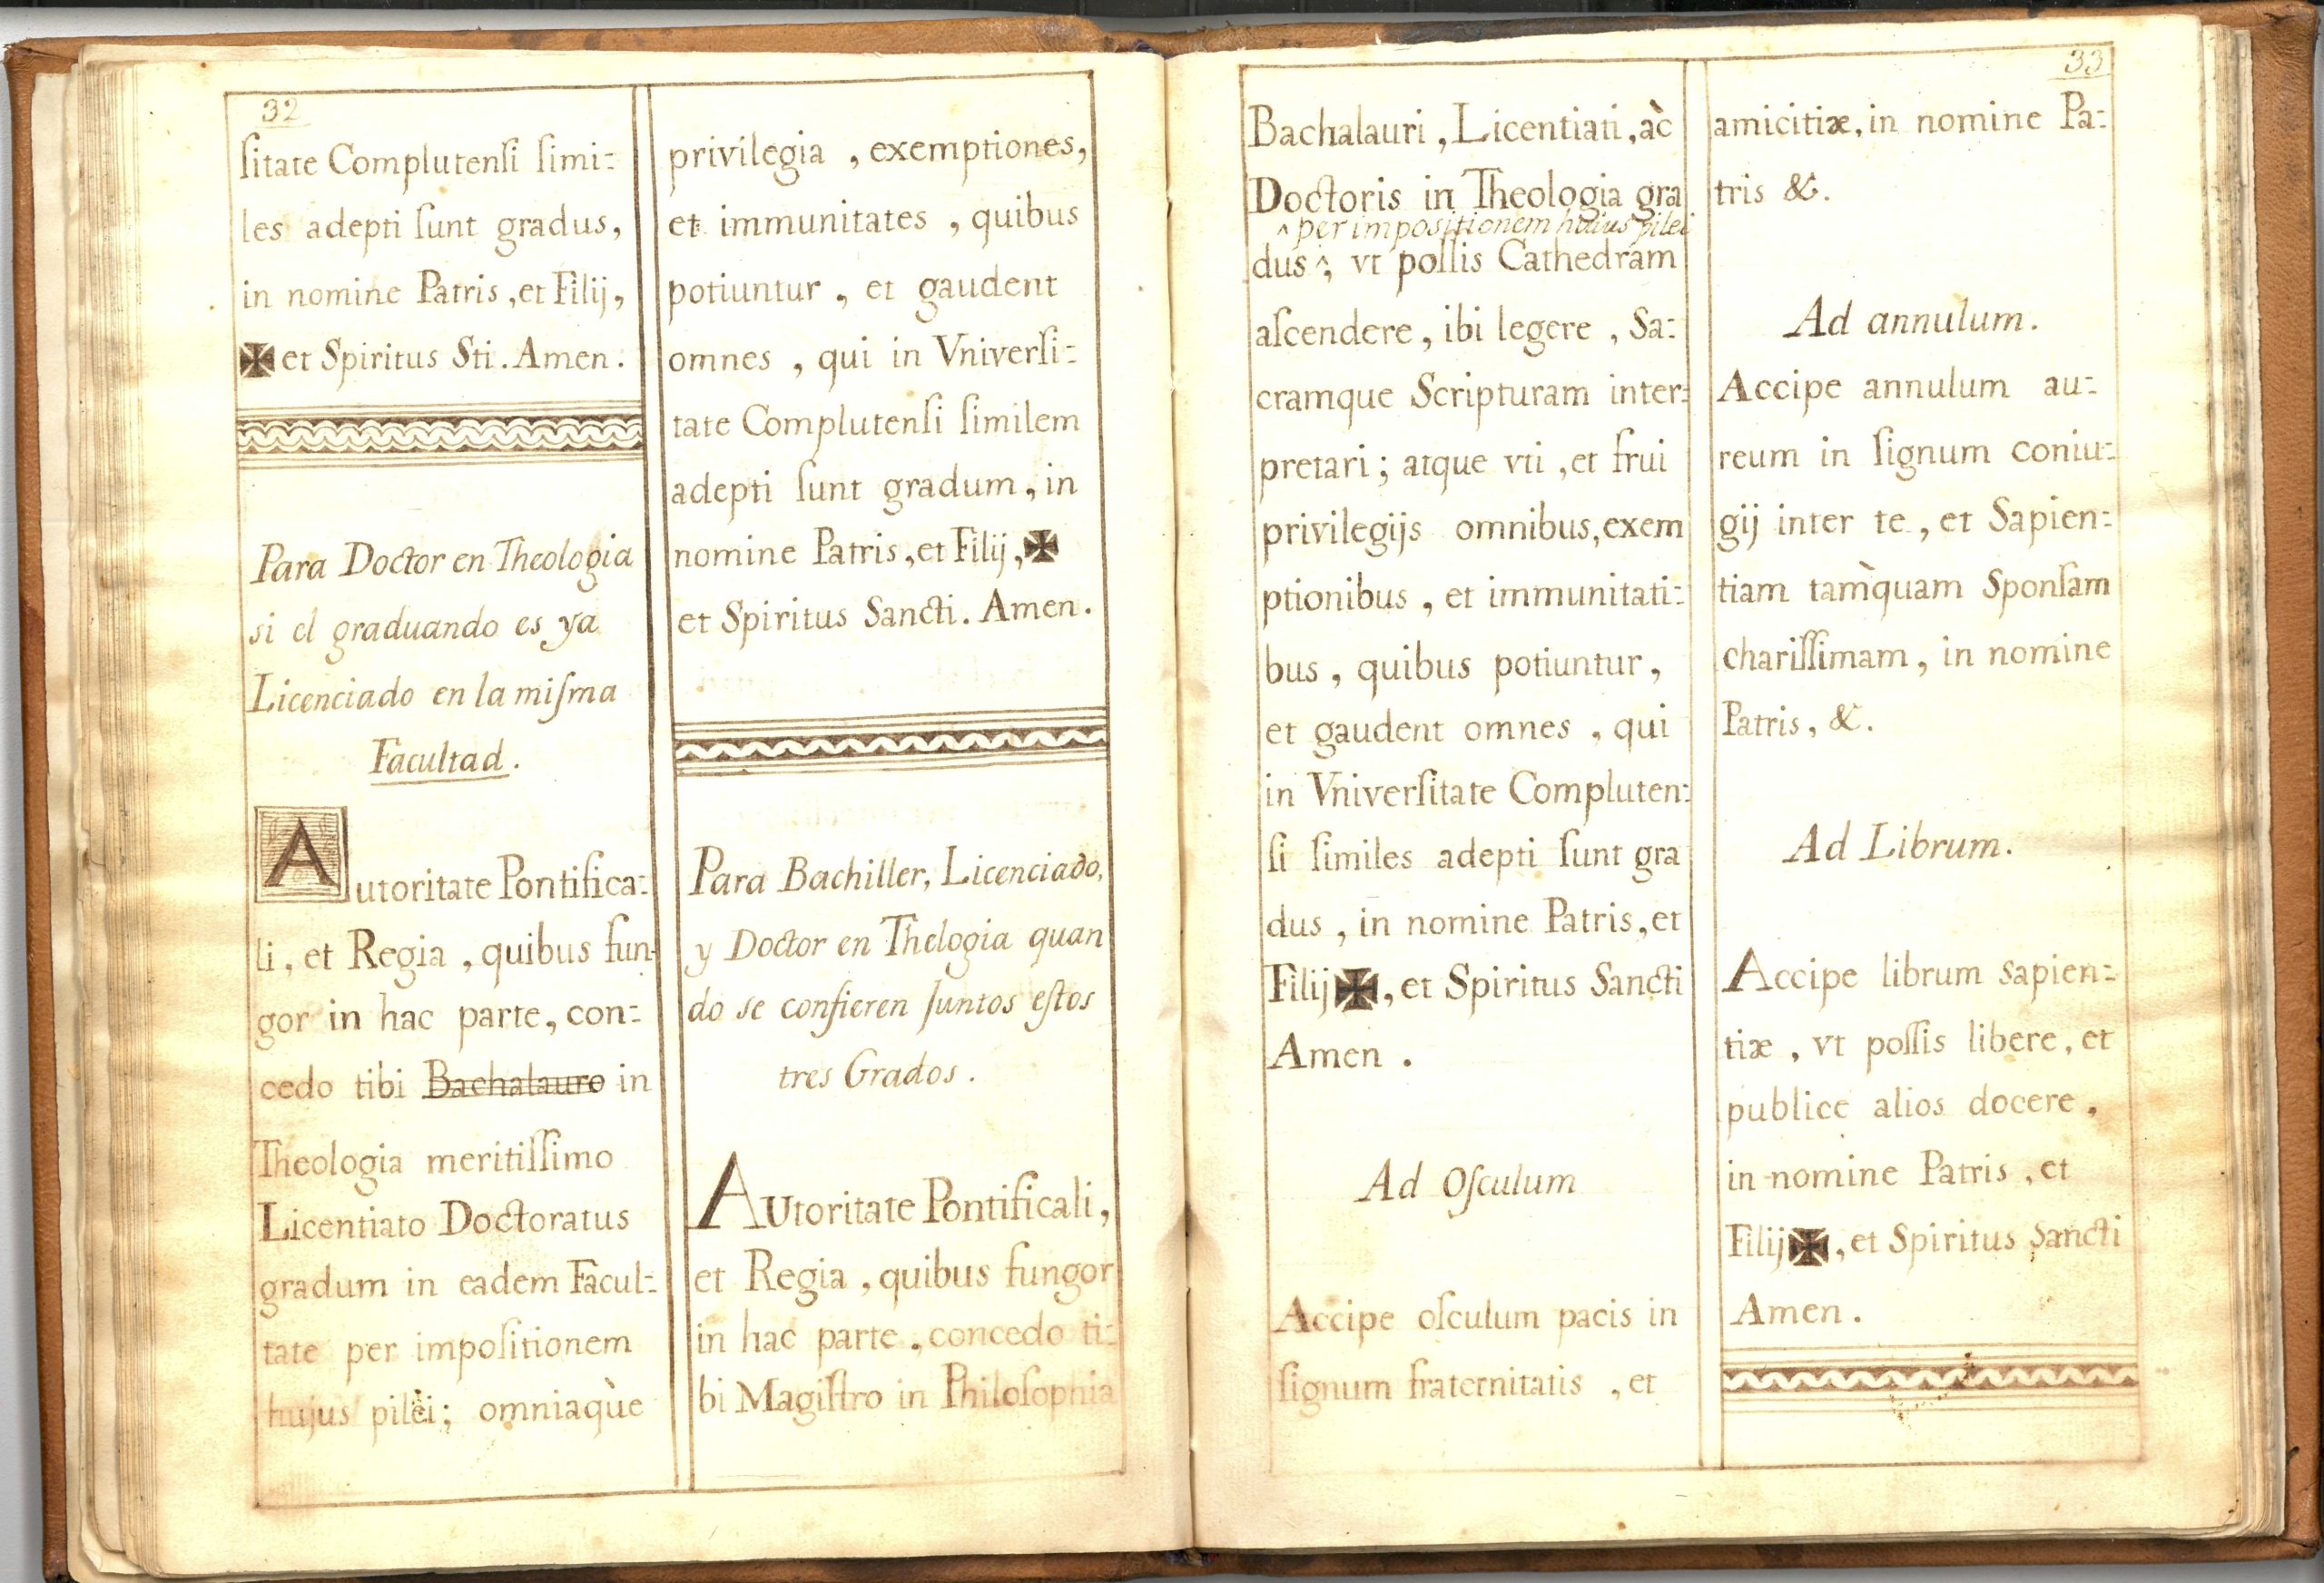 32
ſitate Complutenſi ſimi:
les adepti ſunt gradus,
in nomine Patris, et Filij,
✠ et Spiritus Sti. Amen.
Para Doctor en Theologia
si el graduando es ya
Licenciado en la miſma
Facultad.
Autoritate Pontifica:
li, et Regia, quibus fun-
gor in hac parte, con:
cedo tibi Bachalauro in
Theologia meritiſſimo
Licentiato Doctoratus
gradum in eadem Facul:
tate per impoſitionem
hujus pilèi; omniaquè
privilegia, exemptiones,
et immunitates, quibus
potiuntur, et gaudent
omnes, qui in Vniverſi:
tate Complutenſi ſimilem
adepti ſunt gradum, in
nomine Patris, et Filij, ✠
et Spiritus Sancti. Amen.
Para Bachiller, Licenciado,
y Doctor en Thelogia quan
do se confieren Juntos eſtos
tres Grados.
Autoritate Pontificali,
et Regia, quibus fungor
in hac parte, concedo ti:
bi Magiſtro in Philoſophia
Bachalauri, Licentiati, àc
Doctoris in Theologia gra
^ per impositionem huius pilei
dus ^; vt poſſis Cathedram
aſcendere, ibi legere, Sa:
cramque Scripturam inter:
pretari; atque vti, et frui
privilegijs omnibus, exem
ptionibus, et immunitati:
bus, quibus potiuntur,
et gaudent omnes, qui
in Vniverſitate Compluten:
ſi ſimiles adepti ſunt gra
dus, in nomine Patris, et
Filij ✠, et Spiritus Sancti
Amen.
Ad Oſculum
Accipe oſculum pacis in
ſignum fraternitatis, et
33
amicitiæ, in nomine Pa:
tris &.
Ad annulum.
Accipe annulum au:
reum in ſignum coniu:
gij inter te, et Sapien:
tiam tam̀quam Sponſam
chariſſimam, in nomine
Patris, &.
Ad Librum.
Accipe librum sapien:
tiæ, vt poſſis libere, et
publice alios docere,
in nomine Patris, et
Filij ✠, et Spiritus Sancti
Amen.